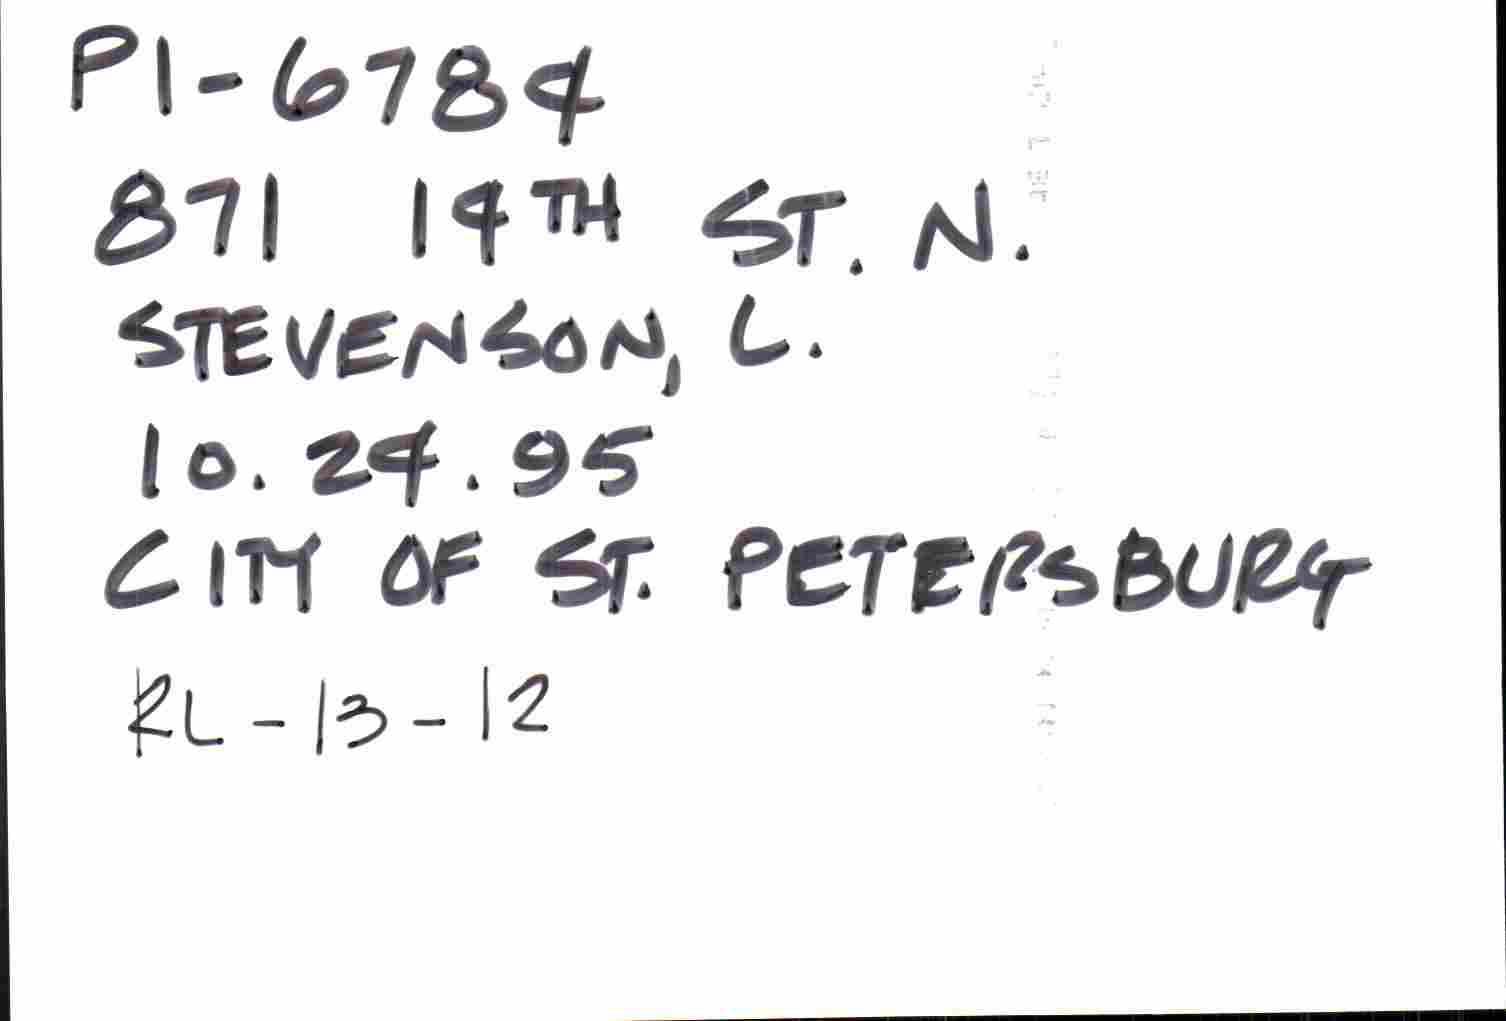 PI-6784
871 14TH ST. N.
STEVENSON, L.
10.24.95
CITY OF ST. PETERSBURG
RL-13-12